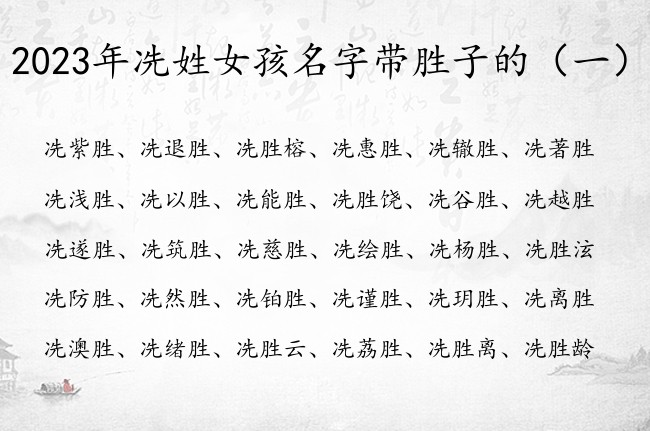 2023年冼姓女孩名字带胜子的（一）
冼紫胜、冼退胜、冼胜榕、冼惠胜、冼辙胜、冼著胜
冼浅胜、冼以胜、冼能胜、冼胜饶、冼谷胜、冼越胜
冼遂胜、冼筑胜、冼慈胜、冼绘胜、冼杨胜、冼胜泫
冼防胜、冼然胜、冼铂胜、冼谨胜、冼玥胜、冼离胜
冼澳胜、冼绪胜、冼胜云、冼荔胜、冼胜离、冼胜龄